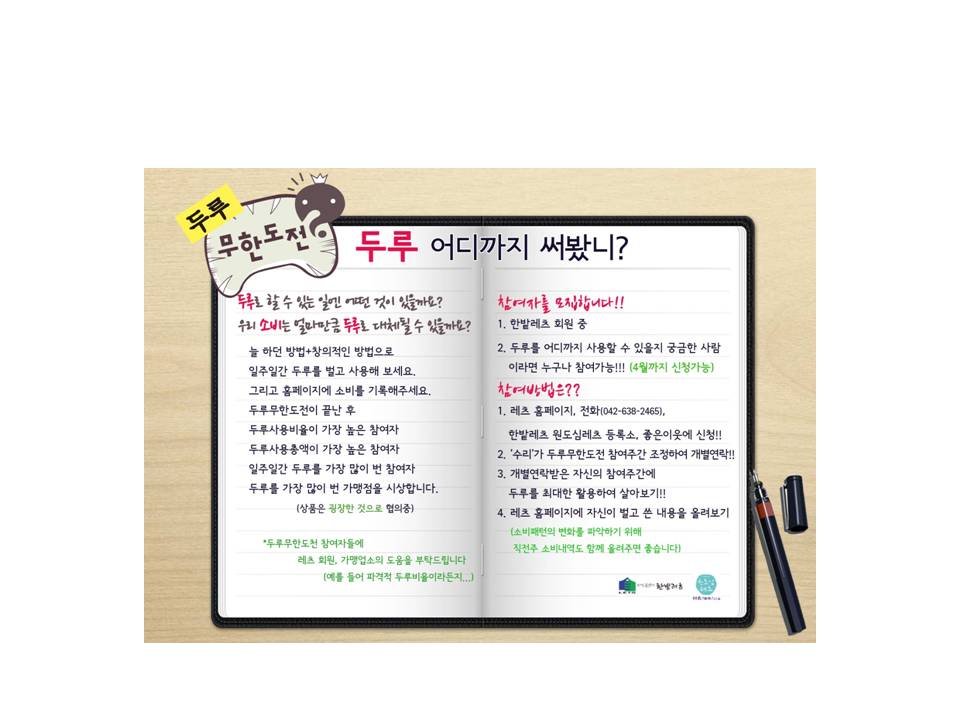 두루
무한도전
두루 어디까지 써봤니?
두루로 할 수 있는 일엔 어떤 것이 있을까요?
우리 소비는 얼마만큼 두루로 대체될 수 있을까요?
늘 하던 방법+창의적인 방법으로
일주일간 두루를 벌고 사용해 보세요.
그리고 홈페이지에 소비를 기록해주세요.
두루무한도전이 끝난 후
두루사용비율이 가장 높은 참여자
두루사용총액이 가장 높은 참여자
일주일간 두루를 가장 많이 번 참여자
두루를 가장 많이 번 가맹점을 시상합니다.
(상품은 굉장한 것으로 협의중)
*두루무한도천 참여자들에
레츠 회원, 가맹업소의 도움을 부탁드립니다
(예를 들어 파격적 두루비율이라든지...)
참여자를 모집합니다!!
1. 한밭레츠 회원 중
2. 두루를 어디까지 사용할 수 있을지 궁금한 사람
이라면 누구나 참여가능!!! (4월까지 신청가능)
참여방법은??
1. 레츠 홈페이지, 전화(042-638-2465),
한밭레츠 원도심레츠 등록소, 좋은이웃에 신청!!
2. '수리'가 두루무한도전 참여주간 조정하여 개별연락!!
3. 개별연락받은 자신의 참여주간에
두루를 최대한 활용하여 살아보기!!
4. 레츠 홈페이지에 자신이 벌고 쓴 내용을 올려보기
(소비패턴의 변화를 파악하기 위해
직전주 소비내역도 함께 올려주면 좋습니다)
한밭레츠